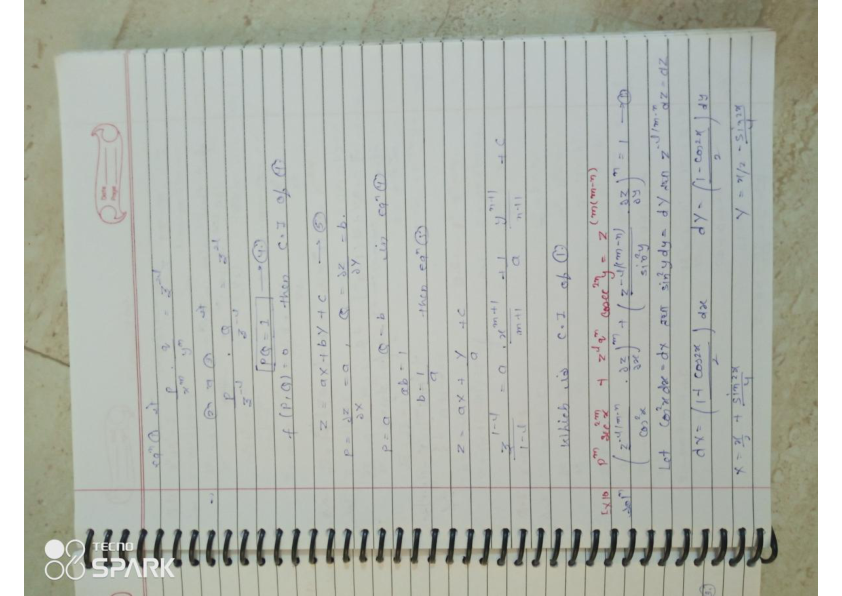 Date
Page
eqn ① ⇒
p/x^m · q/y^n = z^-l
② ⇒
P/z^-l · Q/z^-l = z^-l
[PQ = 1] → ④
f(P,Q) = 0 then C.I of ①
Z = ax + bY + c → ③
P = ∂Z/∂X = a, Q = ∂Z/∂Y = b.
P = a Q = b in eqn ①
ab = 1
b = 1/a then eqn
Z = aX + Y/a + c
z^1-l / 1-l = a · x^m+1 / m+1 + 1/a y^n+1 / n+1 + c
which is C.I of ①
p^m sec^2m x + z^l q^n cosec^2n y = z^(lm/(m-n))
sol^n (z^-l/(m-n) / cos²x · ∂z/∂x)^m + (z^-l/(m-n) / sin²y · ∂z/∂y)^n = 1 → ①
Let cos²x dx = dX sin²y dy = dY z^-l/(m-n) dz = dZ
dX = (1 + cos2x / 2) dx dY = (1 - cos2x / 2) dy
X = x/2 + sin2x/4 Y = x/2 - sin2x/4
TECNO
SPARK